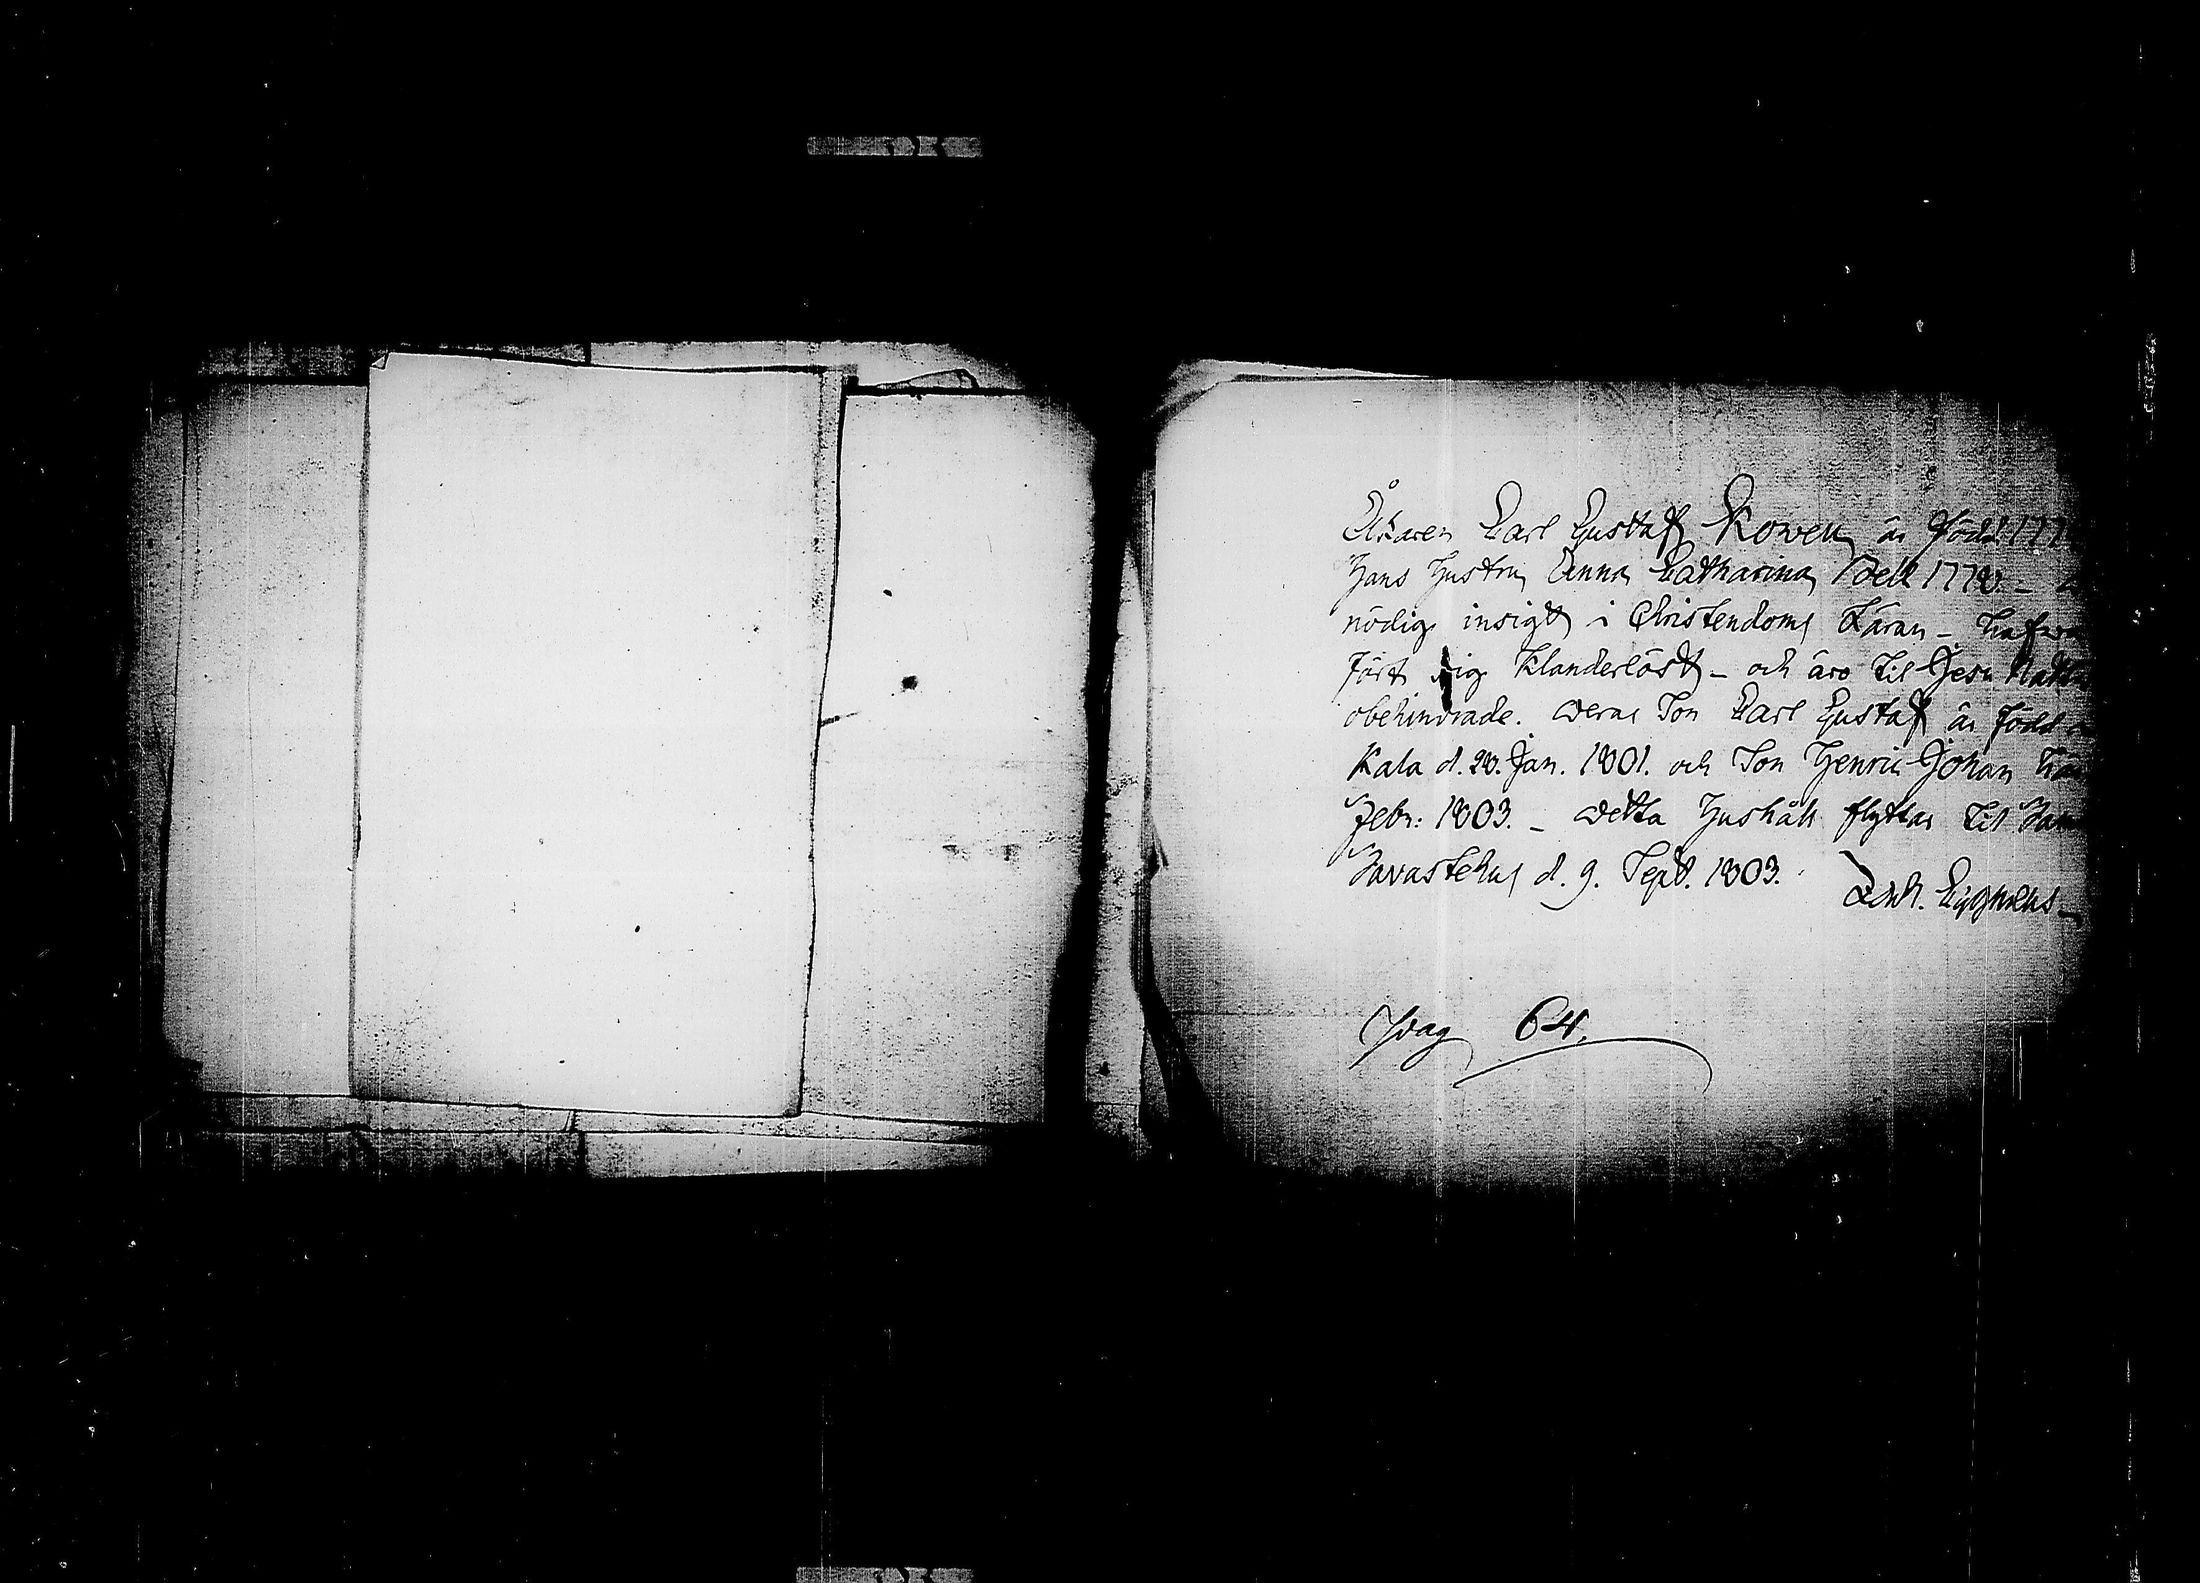 Åkaren Carl Gustaf Rowen är född 177
Hans Hustru Anna Catharina Idell 1778. –
nödig insigt i Christendoms Läran – hafwa
fört sig klanderlöst – och äro til Jesu Natt
obehindrade. Deras Son Carl Gustaf är född
Kala d. 28. Jan. 1801. och Son Henric Johan här
Febr: 1803. – Detta Hushåll flyttar til
Tavastehus d. 9. Sept. 1803.
pag 64.